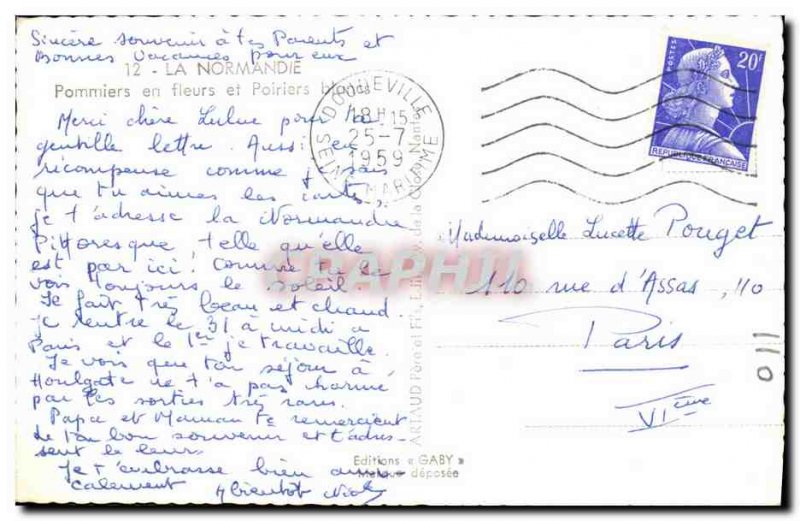 Sincère souvenir à tes Parents et
Bonnes Vacances pour eux
12 - LA NORMANDIE
Pommiers en fleurs et Poiriers blancs
Merci chère Lulue pour ta
gentille lettre. Aussi en
récompense comme je sais
que tu aimes les cartes,
je t'adresse la Normandie
Pittoresque, telle qu'elle
est par ici. Comme tu le
vois toujours le soleil.
Il fait très beau et chaud.
je rentre le 31 à midi à
Paris et le 1er je travaille.
Je vois que ton séjour à
Houlgate ne t'a pas
par tes sorties très rares.
Papa et Maman te remercient
de ton bon souvenir et t'adres-
sent le leur.
Je t'embrasse bien ami-
calement A bientôt
DOUDEVILLE
18H15
25-7
1959
SEINE MARITIME
POSTES
20F
REPUBLIQUE FRANÇAISE
Mademoiselle Lucette Pouget
110 rue d'Assas, 110
Paris
VIème
110
Editions « GABY »
Marque déposée
ARTAUD Père et Fils, Nantes
CRAPHIL